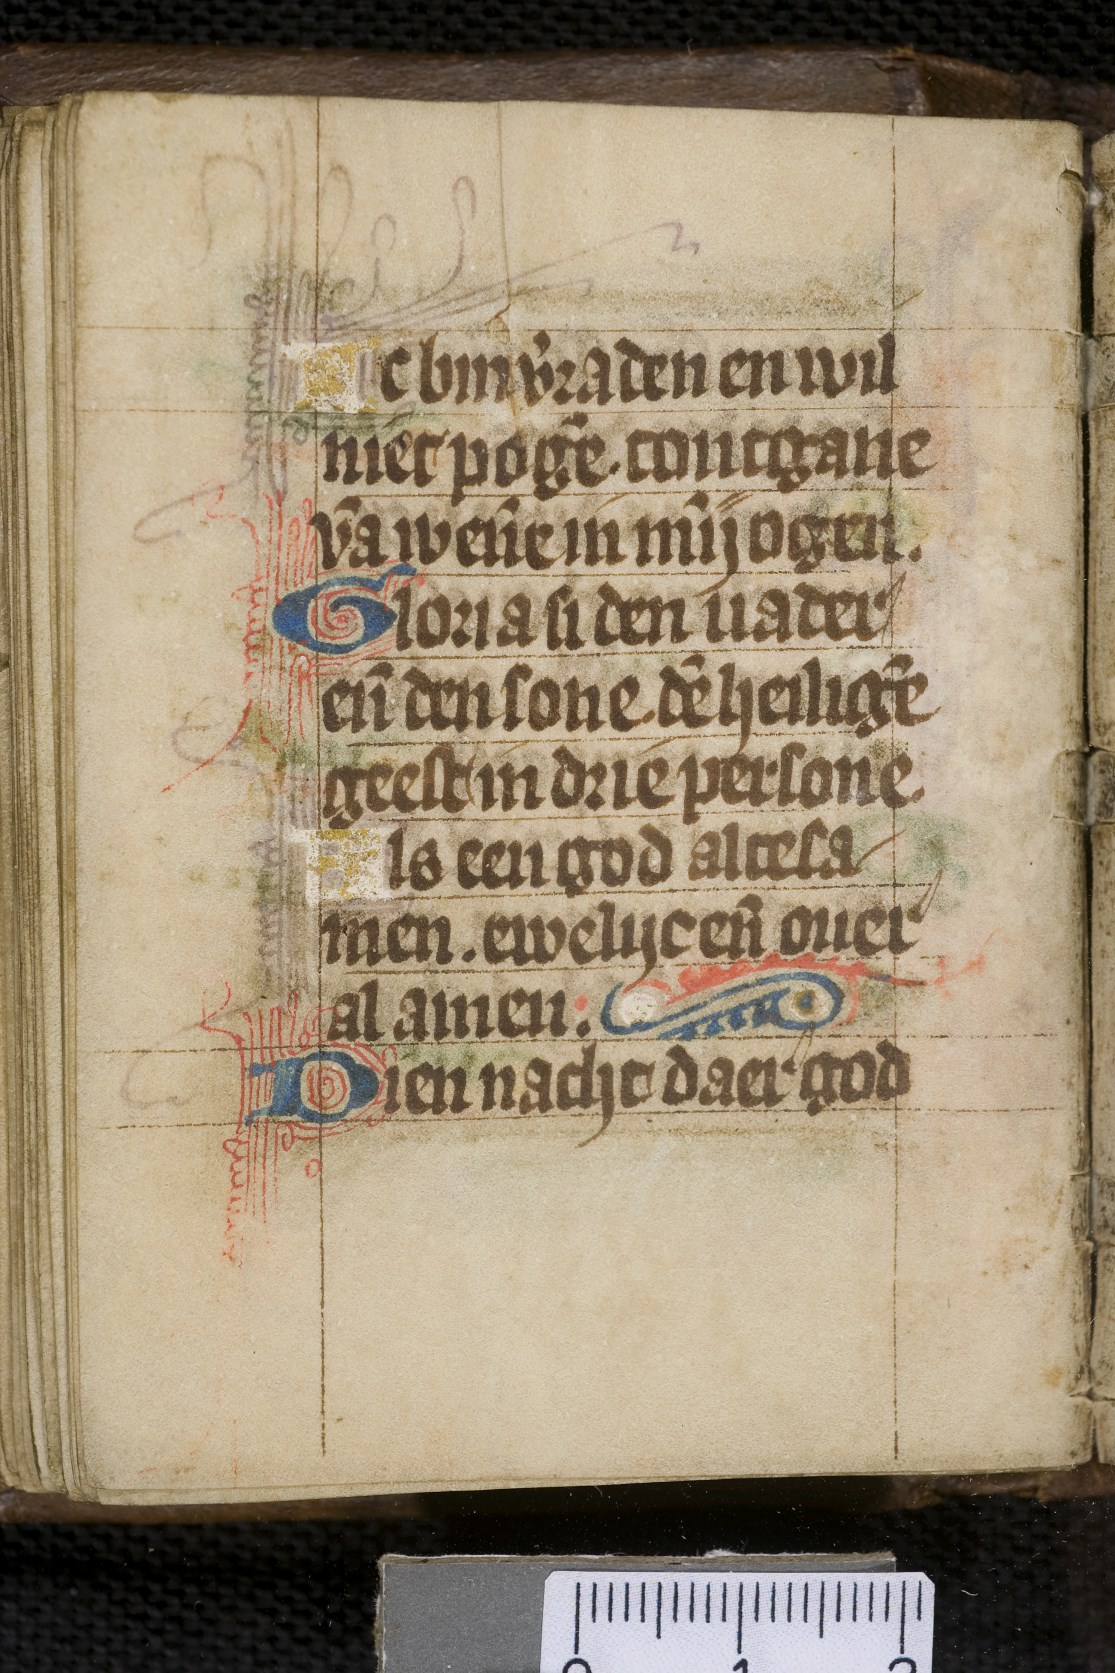 Ic bin v̄raden en wil
niet poḡe. tontgane
v̄a wen̄e in mīj ogen.
Gloria si den uader
en̄ den sone. dē heiliḡe
geest in drie persone.
Als een god altesa
men. ewelijc en̄ ouer
al amen:
Dien nacht daer god
0 1 2